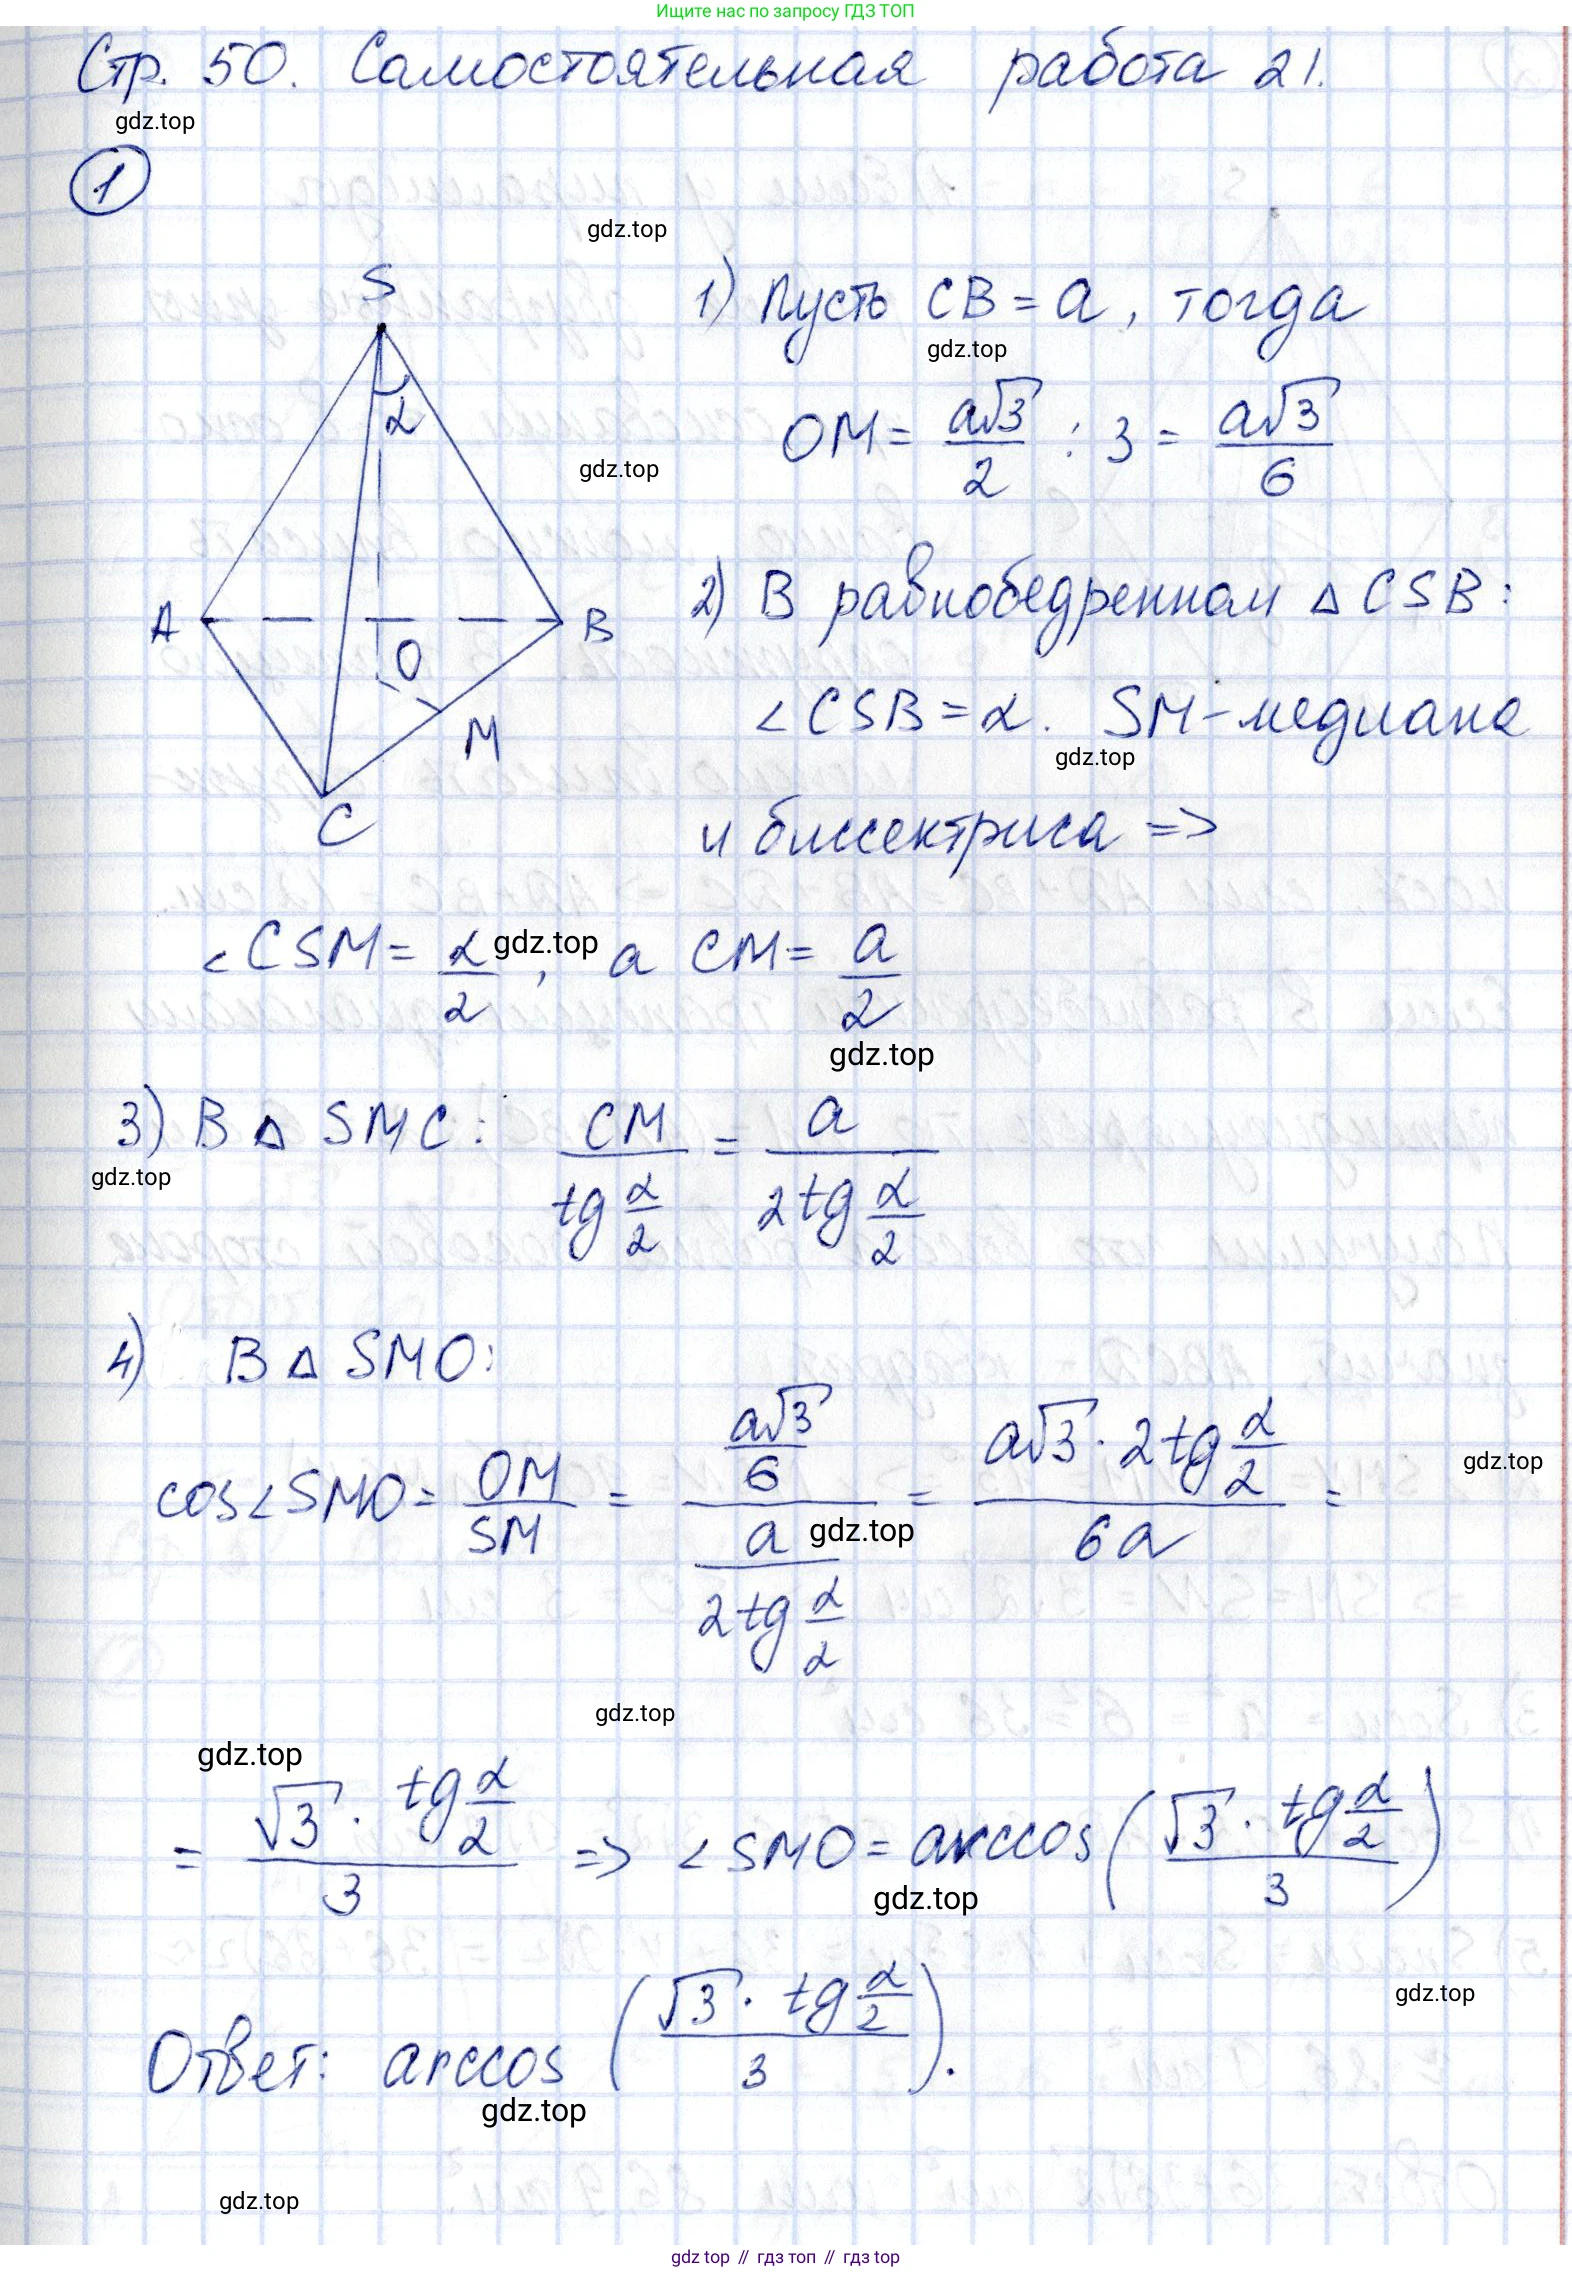 Ищите нас по запросу ГДЗ ТОП
Стр. 50. Самостоятельная работа 21.
gdz.top
1
gdz.top
S
1) Пусть CB = a, тогда
gdz.top
α
OM = a√3/2 : 3 = a√3/6
gdz.top
2) В равнобедренном △CSB:
A B
O
∠CSB = α. SM – медиана
M
gdz.top
C
и биссектриса =>
∠CSM = α/2, а CM = a/2
gdz.top
gdz.top
3) В △ SMC: CM/tg α/2 = a/2tg α/2
gdz.top
4) В △ SMO:
cos∠SMO = OM/SM = (a√3/6)/(a/2tg α/2) = a√3 · 2tg α/2 / 6a =
gdz.top
gdz.top
gdz.top
gdz.top
= √3 · tg α/2 / 3 => ∠SMO = arccos(√3 · tg α/2 / 3)
gdz.top
gdz.top
Ответ: arccos (√3 · tg α/2 / 3).
gdz.top
gdz.top
gdz top // гдз топ // гдз top